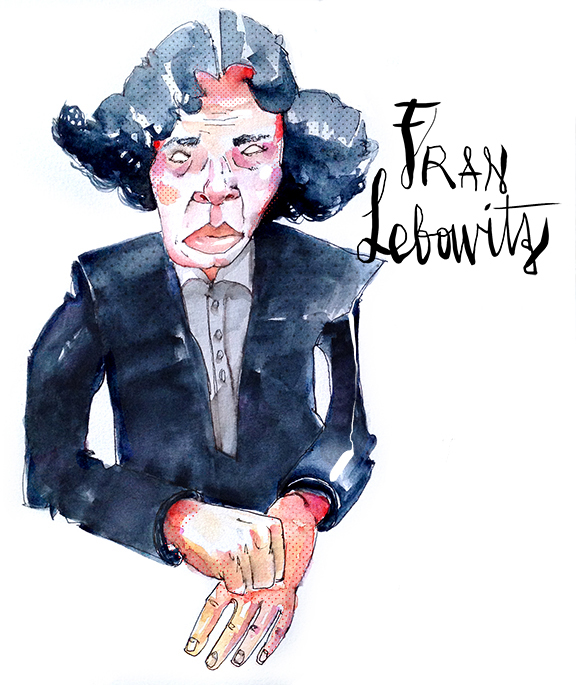 Fran
Lebowitz